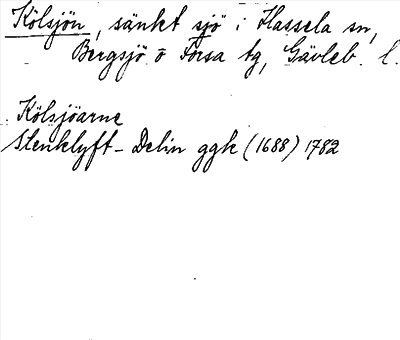 Kölsjön, sänkt sjö i Hassela sn,
Bergsjö o Forsa tg, Gävleb. l.
Kölsjöarne
Stenklyft - Delin ggk (1688) 1782